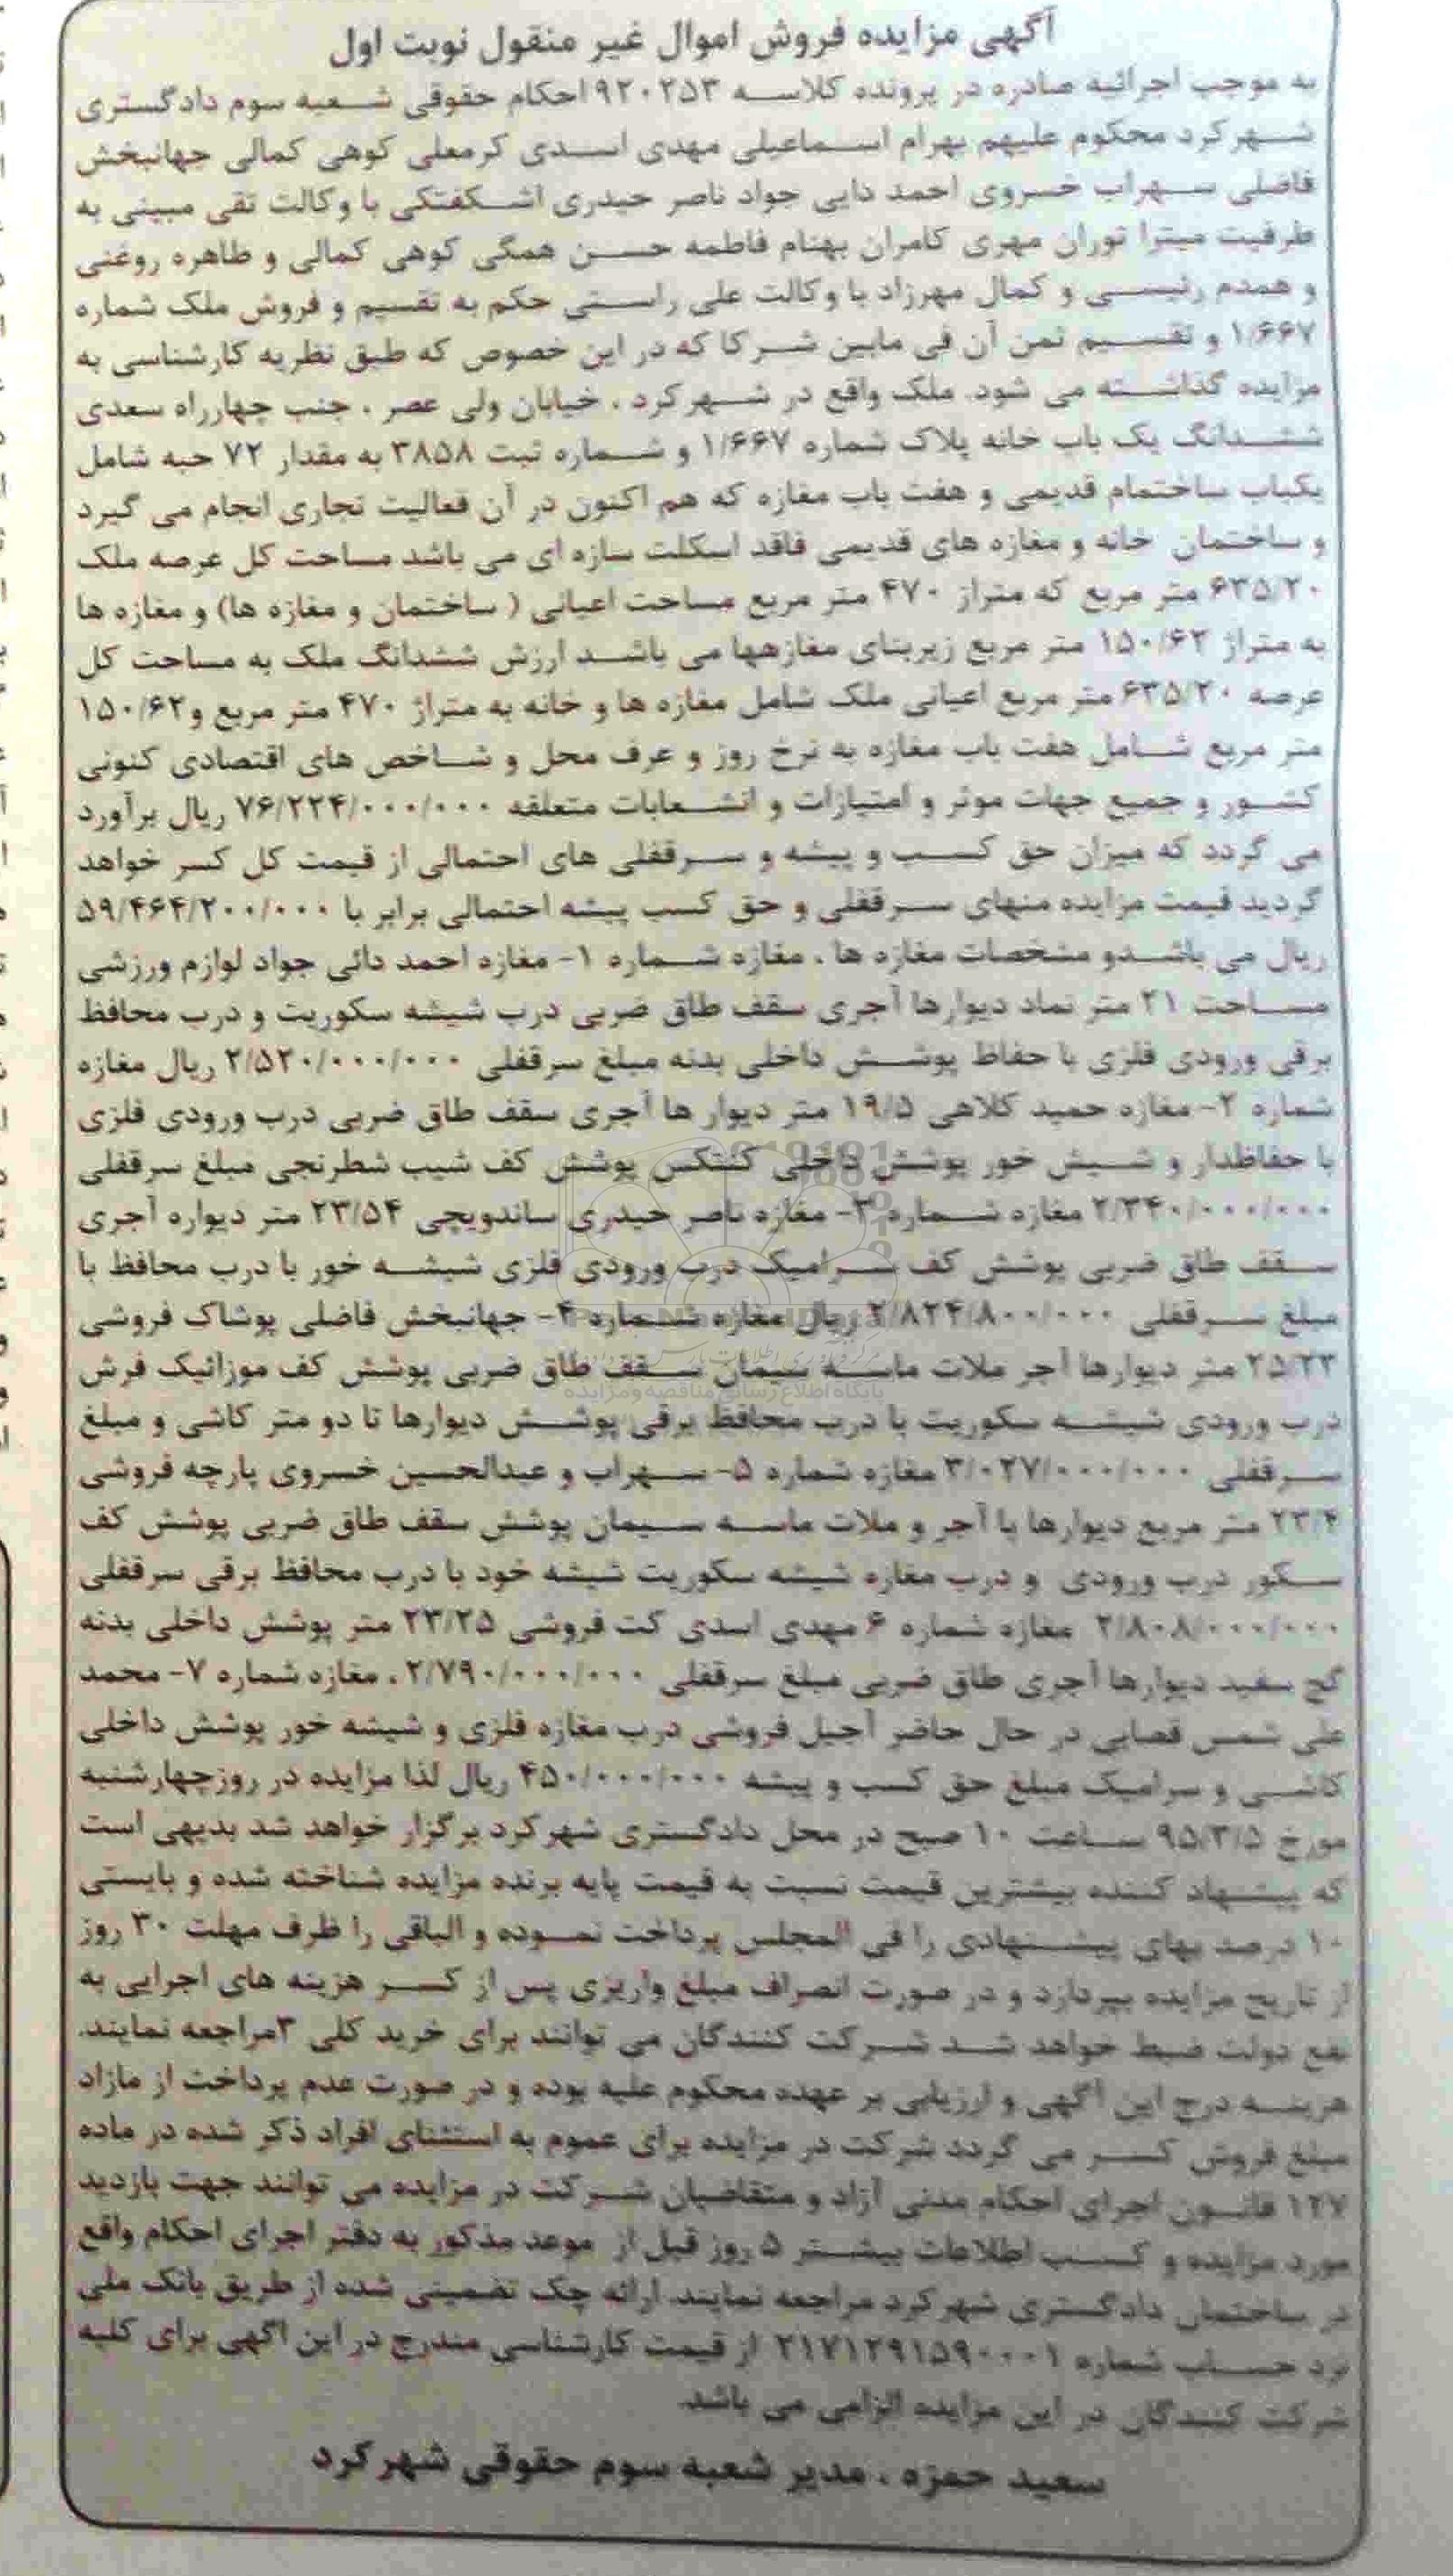 آگهی مزایده فروش اموال غیر منقول نوبت اول
به موجب اجرائیه صادره در پرونده کلاسه ۹۲۰۲۵۳ احکام حقوقی شعبه سوم دادگستری
شهرکرد محکوم علیهم بهرام اسماعیلی مهدی اسدی کرمعلی کوهی کمالی جهانبخش
فاضلی سهراب خسروی احمد دایی جواد ناصر حیدری اشکفتکی با وکالت تقی مبینی به
طرفیت میترا توران مهری کامران بهنام فاطمه حسن همگی کوهی کمالی و طاهره روغنی
و همدم رئیسی و کمال مهرزاد با وکالت علی راستی حکم به تقسیم و فروش ملک شماره
۱/۶۶۷ و تقسیم ثمن آن فی مابین شرکا که در این خصوص که طبق نظریه کارشناسی به
مزایده گذاشته می شود. ملک واقع در شهرکرد ، خیابان ولی عصر ، جنب چهارراه سعدی
ششدانگ یک باب خانه پلاک شماره ۱/۶۶۷ و شماره ثبت ۳۸۵۸ به مقدار ۷۲ حبه شامل
یکباب ساختمام قدیمی و هفت باب مغازه که هم اکنون در آن فعالیت تجاری انجام می گیرد
و ساختمان خانه و مغازه های قدیمی فاقد اسکلت سازه ای می باشد مساحت کل عرصه ملک
۶۳۵/۲۰ متر مربع که متراژ ۴۷۰ متر مربع مساحت اعیانی ( ساختمان و مغازه ها) و مغازه ها
به متراژ ۱۵۰/۶۲ متر مربع زیربنای مغازهها می باشد ارزش ششدانگ ملک به مساحت کل
عرصه ۶۳۵/۲۰ متر مربع اعیانی ملک شامل مغازه ها و خانه به متراژ ۴۷۰ متر مربع و ۱۵۰/۶۲
متر مربع شامل هفت باب مغازه به نرخ روز و عرف محل و شاخص های اقتصادی کنونی
کشور و جمیع جهات موثر و امتیازات و انشعابات متعلقه ۷۶/۲۲۴/۰۰۰/۰۰۰ ریال برآورد
می گردد که میزان حق کسب و پیشه و سرقفلی های احتمالی از قیمت کل کسر خواهد
گردید قیمت مزایده منهای سرقفلی و حق کسب پیشه احتمالی برابر با ۵۹/۴۶۴/۲۰۰/۰۰۰
ریال می باشدو مشخصات مغازه ها ، مغازه شماره ۱- مغازه احمد دائی جواد لوازم ورزشی
مساحت ۲۱ متر نماد دیوارها آجری سقف طاق ضربی درب شیشه سکوریت و درب محافظ
برقی ورودی فلزی با حفاظ پوشش داخلی بدنه مبلغ سرقفلی ۲/۵۲۰/۰۰۰/۰۰۰ ریال مغازه
شماره ۲- مغازه حمید کلاهی ۱۹/۵ متر دیوار ها آجری سقف طاق ضربی درب ورودی فلزی
با حفاظدار و شیش خور پوشش داخلی کنتکس پوشش کف شیب شطرنجی مبلغ سرقفلی
۲/۳۴۰/۰۰۰/۰۰۰ مغازه شماره ۳- مغازه ناصر حیدری ساندویچی ۲۳/۵۴ متر دیواره آجری
سقف طاق ضربی پوشش کف سرامیک درب ورودی فلزی شیشه خور با درب محافظ با
مبلغ سرقفلی ۲/۸۲۴/۸۰۰/۰۰۰ ریال مغازه شماره ۴- جهانبخش فاضلی پوشاک فروشی
۲۵/۲۲ متر دیوارها آجر ملات ماسه سیمان سقف طاق ضربی پوشش کف موزائیک فرش
درب ورودی شیشه سکوریت با درب محافظ برقی پوشش دیوارها تا دو متر کاشی و مبلغ
سرقفلی ۳/۰۲۷/۰۰۰/۰۰۰ مغازه شماره ۵- سهراب و عبدالحسین خسروی پارچه فروشی
۲۳/۴ متر مربع دیوارها با آجر و ملات ماسه سیمان پوشش سقف طاق ضربی پوشش کف
سکور درب ورودی و درب مغازه شیشه سکوریت شیشه خود با درب محافظ برقی سرقفلی
۲/۸۰۸/۰۰۰/۰۰۰ مغازه شماره ۶ مهدی اسدی کت فروشی ۲۳/۲۵ متر پوشش داخلی بدنه
گچ سفید دیوارها آجری طاق ضربی مبلغ سرقفلی ۲/۷۹۰/۰۰۰/۰۰۰ ، مغازه شماره ۷- محمد
علی شمس قصابی در حال حاضر آجیل فروشی درب مغازه فلزی و شیشه خور پوشش داخلی
کاشی و سرامیک مبلغ حق کسب و پیشه ۴۵۰/۰۰۰/۰۰۰ ریال لذا مزایده در روزچهارشنبه
مورخ ۹۵/۳/۵ ساعت ۱۰ صبح در محل دادگستری شهرکرد برگزار خواهد شد بدیهی است
که پیشنهاد کننده بیشترین قیمت نسبت به قیمت پایه برنده مزایده شناخته شده و بایستی
۱۰ درصد بهای پیشنهادی را فی المجلس پرداخت نموده و الباقی را ظرف مهلت ۳۰ روز
از تاریخ مزایده بپردازد و در صورت انصراف مبلغ واریزی پس از کسر هزینه های اجرایی به
نفع دولت ضبط خواهد شد شرکت کنندگان می توانند برای خرید کلی ۳مراجعه نمایند.
هزینه درج این آگهی و ارزیابی بر عهده محکوم علیه بوده و در صورت عدم پرداخت از مازاد
مبلغ فروش کسر می گردد شرکت در مزایده برای عموم به استثنای افراد ذکر شده در ماده
۱۲۷ قانون اجرای احکام مدنی آزاد و متقاضیان شرکت در مزایده می توانند جهت بازدید
مورد مزایده و کسب اطلاعات بیشتر ۵ روز قبل از موعد مذکور به دفتر اجرای احکام واقع
در ساختمان دادگستری شهرکرد مراجعه نمایند. ارائه چک تضمینی شده از طریق بانک ملی
نزد حساب شماره ۲۱۷۱۲۹۱۵۹۰۰۰۱ از قیمت کارشناسی مندرج در این آگهی برای کلیه
شرکت کنندگان در این مزایده الزامی می باشد.
سعید حمزه ، مدیر شعبه سوم حقوقی شهرکرد